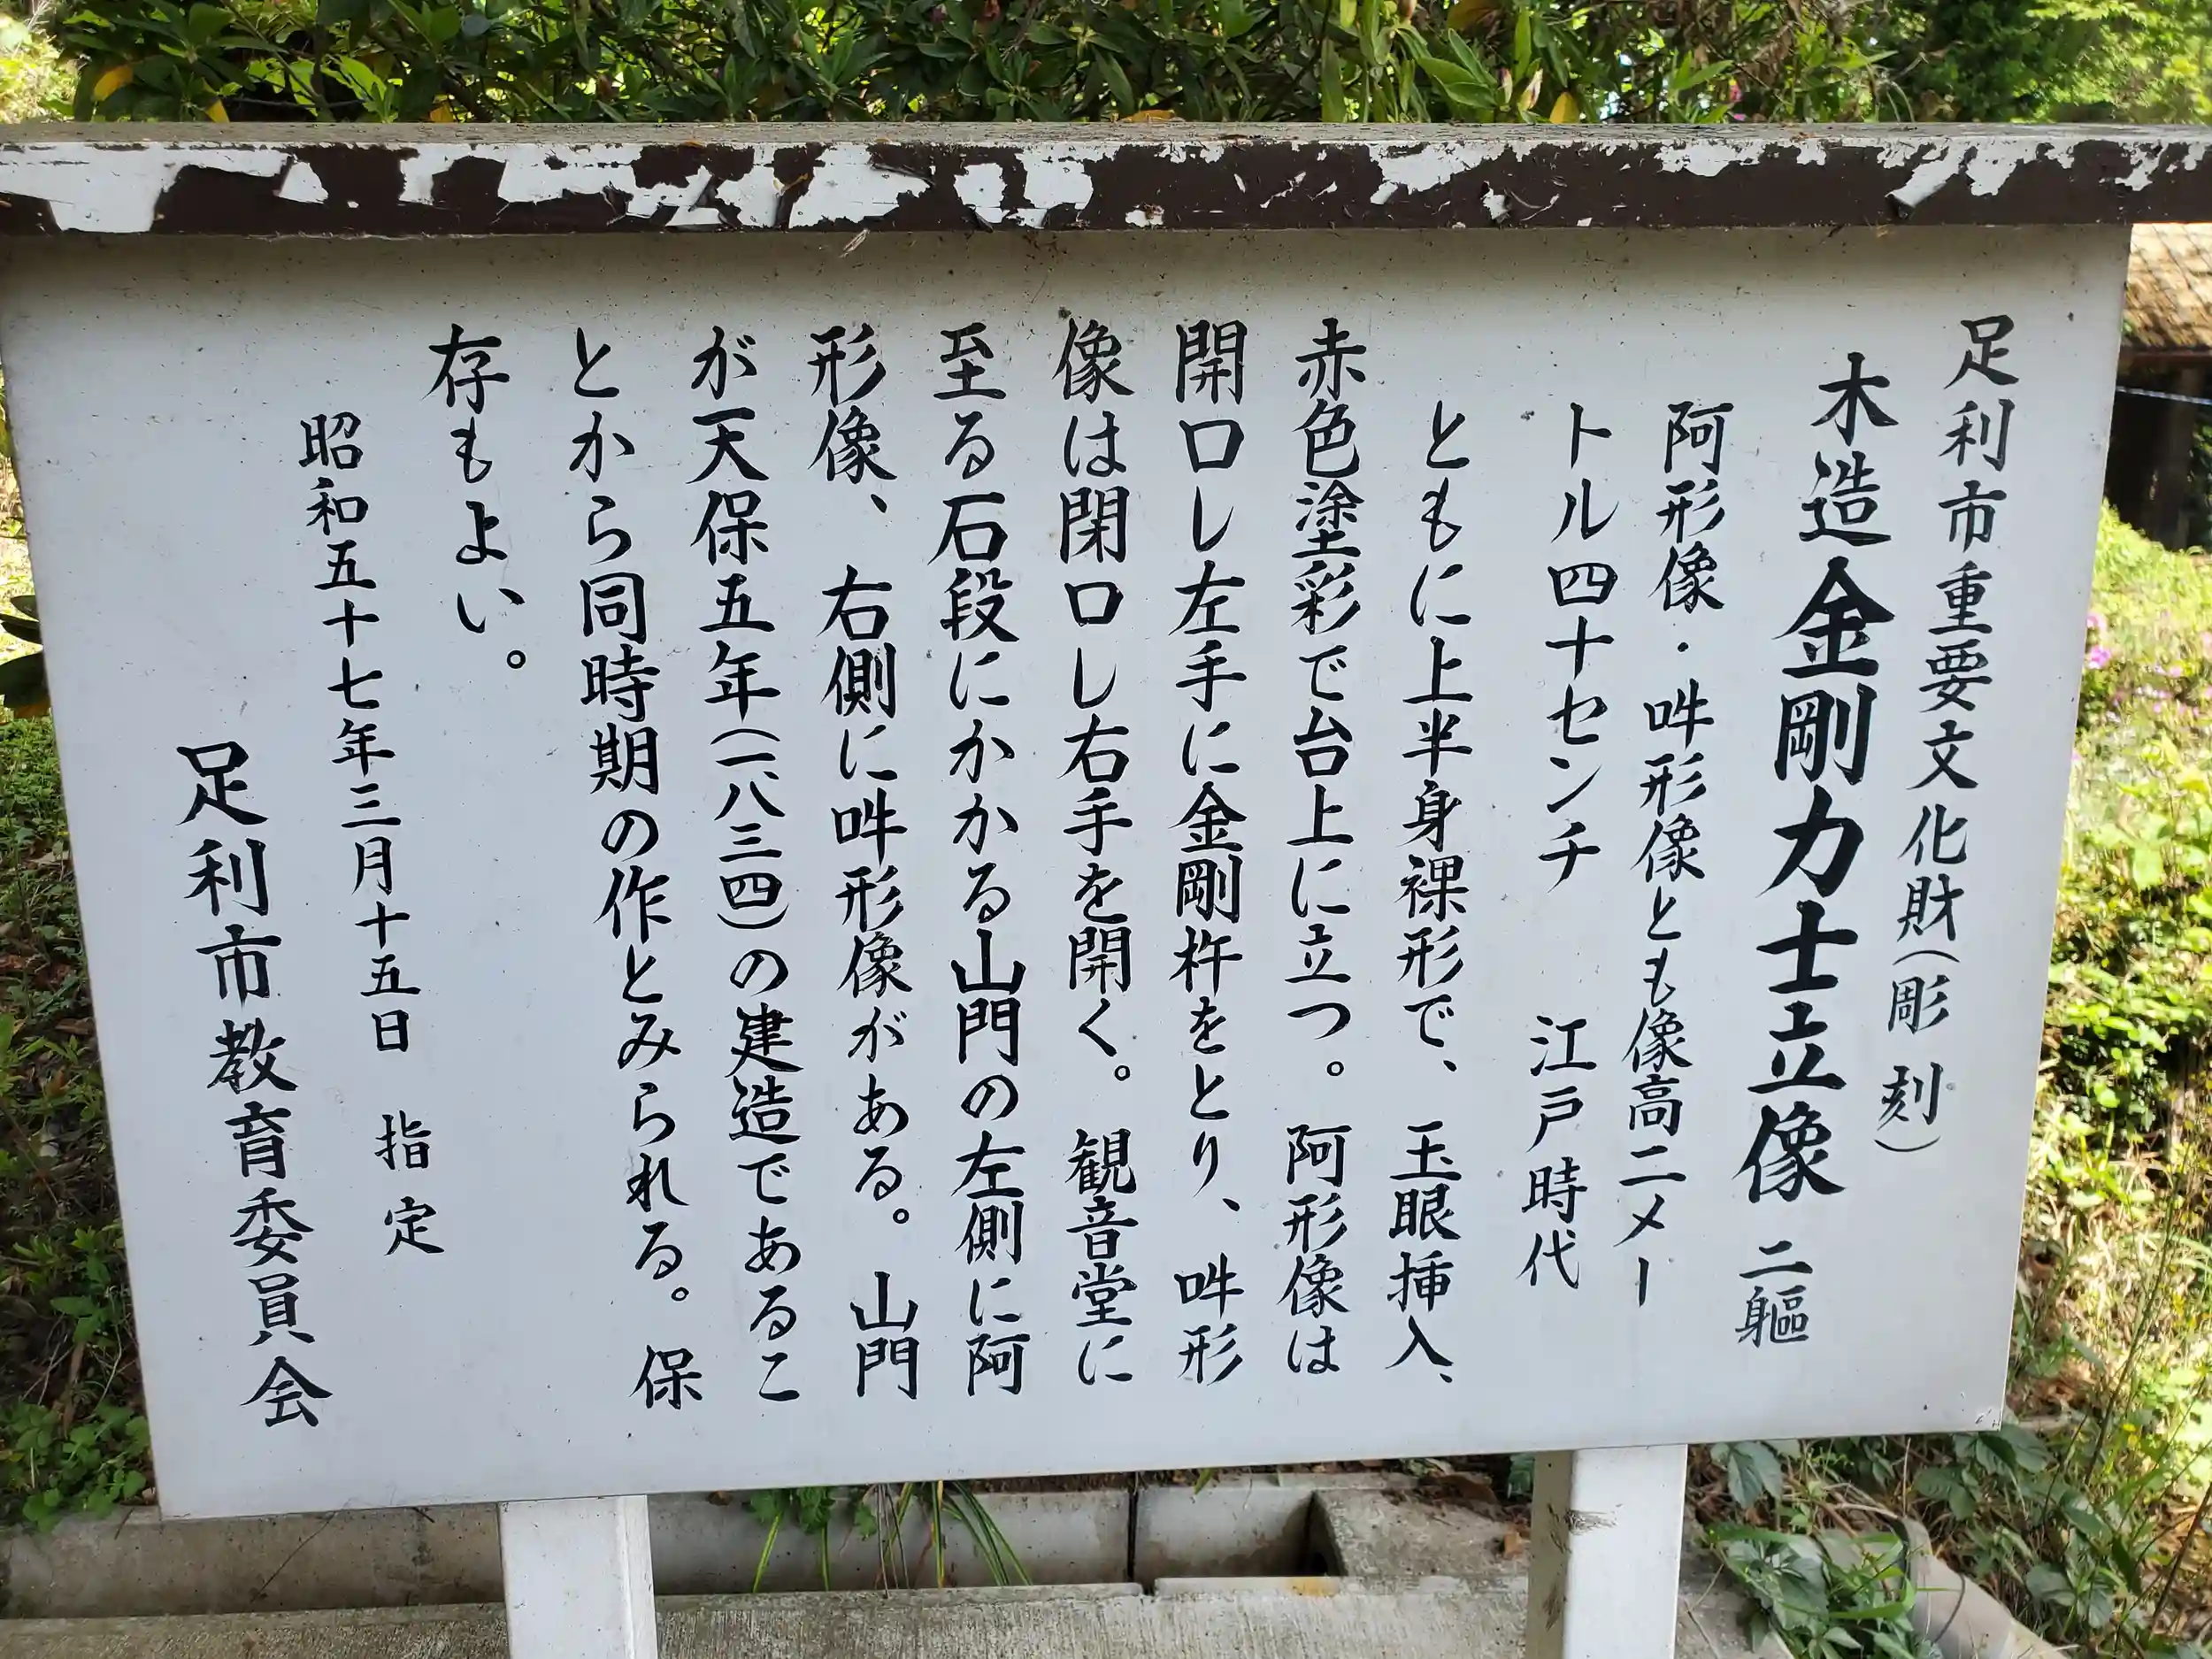 足利市重要文化財(彫刻)
木造金剛力士立像 二軀
阿形像・吽形像とも像高二メー
トル四十センチ 江戸時代
ともに上半身裸形で、玉眼挿入、
赤色塗彩で台上に立つ。阿形像は
開口し左手に金剛杵をとり、吽形
像は閉口し右手を開く。観音堂に
至る石段にかかる山門の左側に阿
形像、右側に吽形像がある。山門
が天保五年(一八三四)の建造であるこ
とから同時期の作とみられる。保
存もよい。
昭和五十七年三月十五日 指定
足利市教育委員会